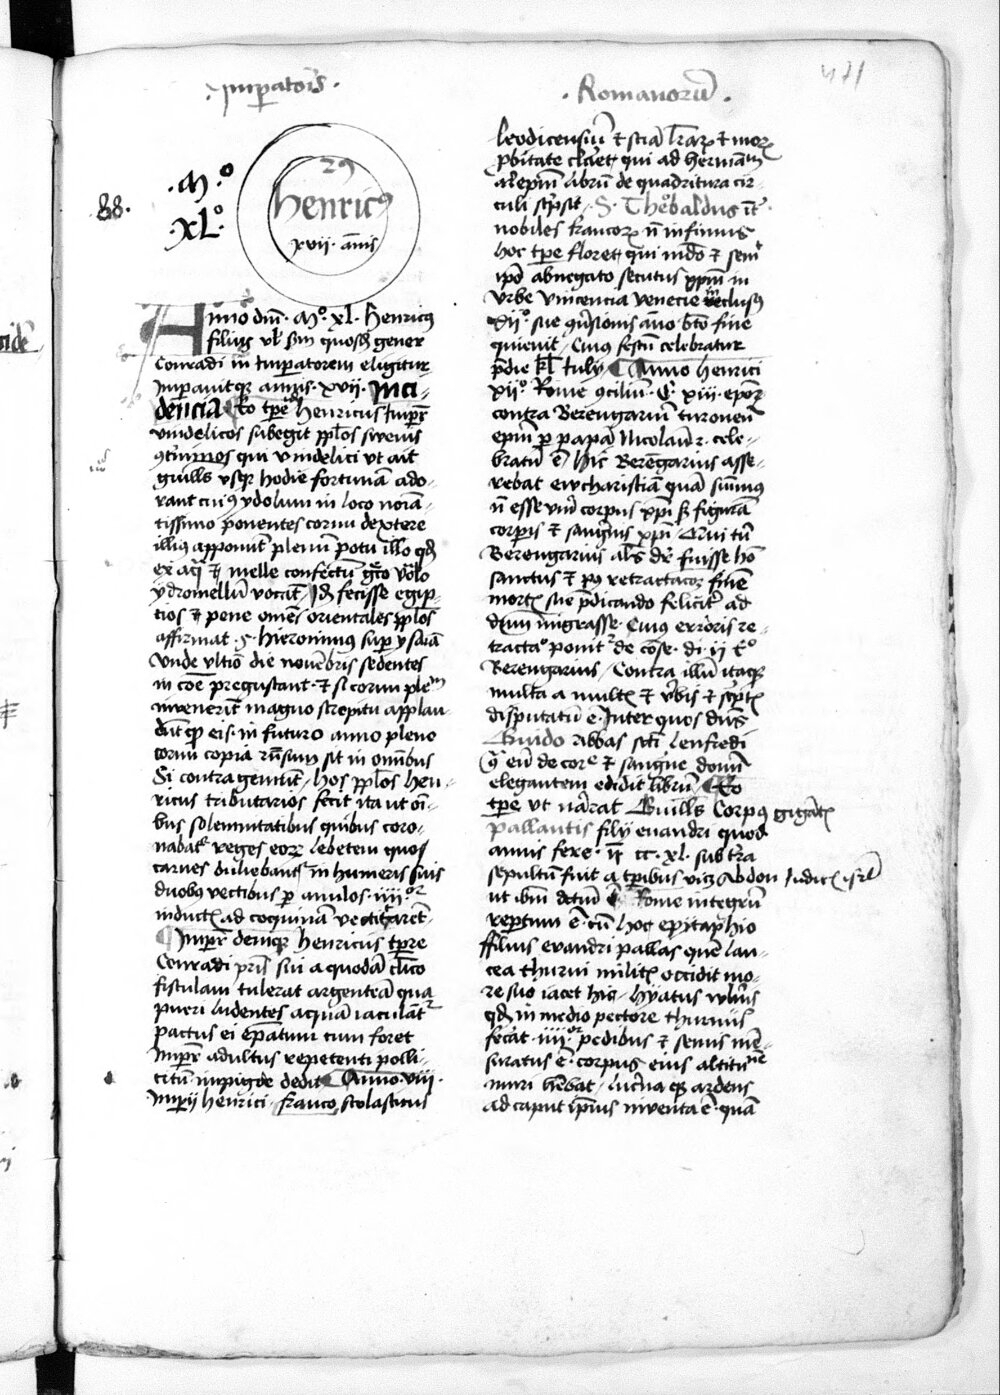 Imperatoris
Romanorū
471
.M.º
.XL.º
88.
29
Henricꝰ
xvii annis
Anno dni .Mº. XL. Henricꝰ
filius vl' scdm quosdā gener
Conradi in Imperatorem eligitur
Imperauitque annis .xvii. Inci-
dencia Eo tpe Henricus Impr
vindelicos subegit pplos sweuis
qui vindelici vt ait
guills vsque hodie fortunam ado-
rant cuiꝰ ydolum in loco noīa-
tissimo ponentes cornu dextere
illiꝰ apponūt plenū potu illo qd
ex aqua et melle confectū gco vocablo
ydromellū vocāt Id fecisse egip-
tios et pene omēs orientales pplos
affirmat .S. Hieronimus sup ysaiā
Unde vltio die nouēbris sedentes
in coē pregustant et si cornu plenū
inuenerīt magno strepitu applau-
dūt eis in futuro anno pleno
cornu copiā rursum sit in omibus
Si contra gemūt Hos pplos Hen-
ricus tributarios fecit ita ut oī-
bus solennitatibus quibus coro-
nabatur reges eorum lebetem quo
carnes buliebant in humeris suis
duobꝰ vectibus per anulos iiiior
inductis ad coquinā vectitarent
Impr deniqꝫ Henricus tpre
Conradi pris sui a quodā clico
fistulam tulerat argenteā qua
pueri ludentes aquam iaculātr
pactus ei epatum cum foret
Impr adultus repetenti polli-
citū impigre dedit Anno .viii.
Imperii Henrici franco scolasticus
leodicensiū et sciā lrarꝫ et morꝫ
pbitate claret qui ad Hermānū
archiepm librū de quadratura cir-
culi scpsit S. Theobaldus inter
nobiles francorꝫ non infimus
hoc tpe floret qui mūdo et sem
ipo abnegato secutus xpm in
vrbe vincencia venecie reclusꝰ
xiiº sue conversionis anno bto fine
quieuit Cuius festū celebratur
pdie kl July Anno Henrici
xii. Rome concilium C xiii eporꝫ
contra Berengariū turoneñ
epm per papā Nicolaū 2 cele-
bratū ē Hic Berengarius asse-
rebat ewcharistiā quā sumimus
non esse verum corpus xpi sed figurā
corpis et sanguis xpi Qui tn
Berengarius als dr fuisse ho
sanctus et pꝰ retractacōꝫ finē
mortis sue pdicando feliciter ad
dnm migrasse Cuius erroris re-
tractatio ponit de cōse. di. ii cº
Berengarius Contra illū itaqꝫ
multa a multis et vbis et scptis
disputatū ē Inter quos dūs
Guido abbas scti lenfredi
de corpore et sanguine domi
elegantem edidit librū Eo
tpe vt narrat Guills Corpus gigātis
pallantis filii euandri quod
annis fere ii cc xl sub tra
sepultū fuit a tpibus viꝫ Abdon Judicis isrl
ut ibm dictū ē Rome integrū
reptum ē cū hoc epitaphio
ffilius euandri pallas quē lan-
cea thurni militis occidit mo-
re suo iacet hic Hyatus vulnis
qd in medio pectore thurnus
fecat iiiior pedibus et semis mē-
suratus ē corpus eius altitudinē
muri vincebat lucna qꝫ ardens
ad caput ipsius inuenta ē quā